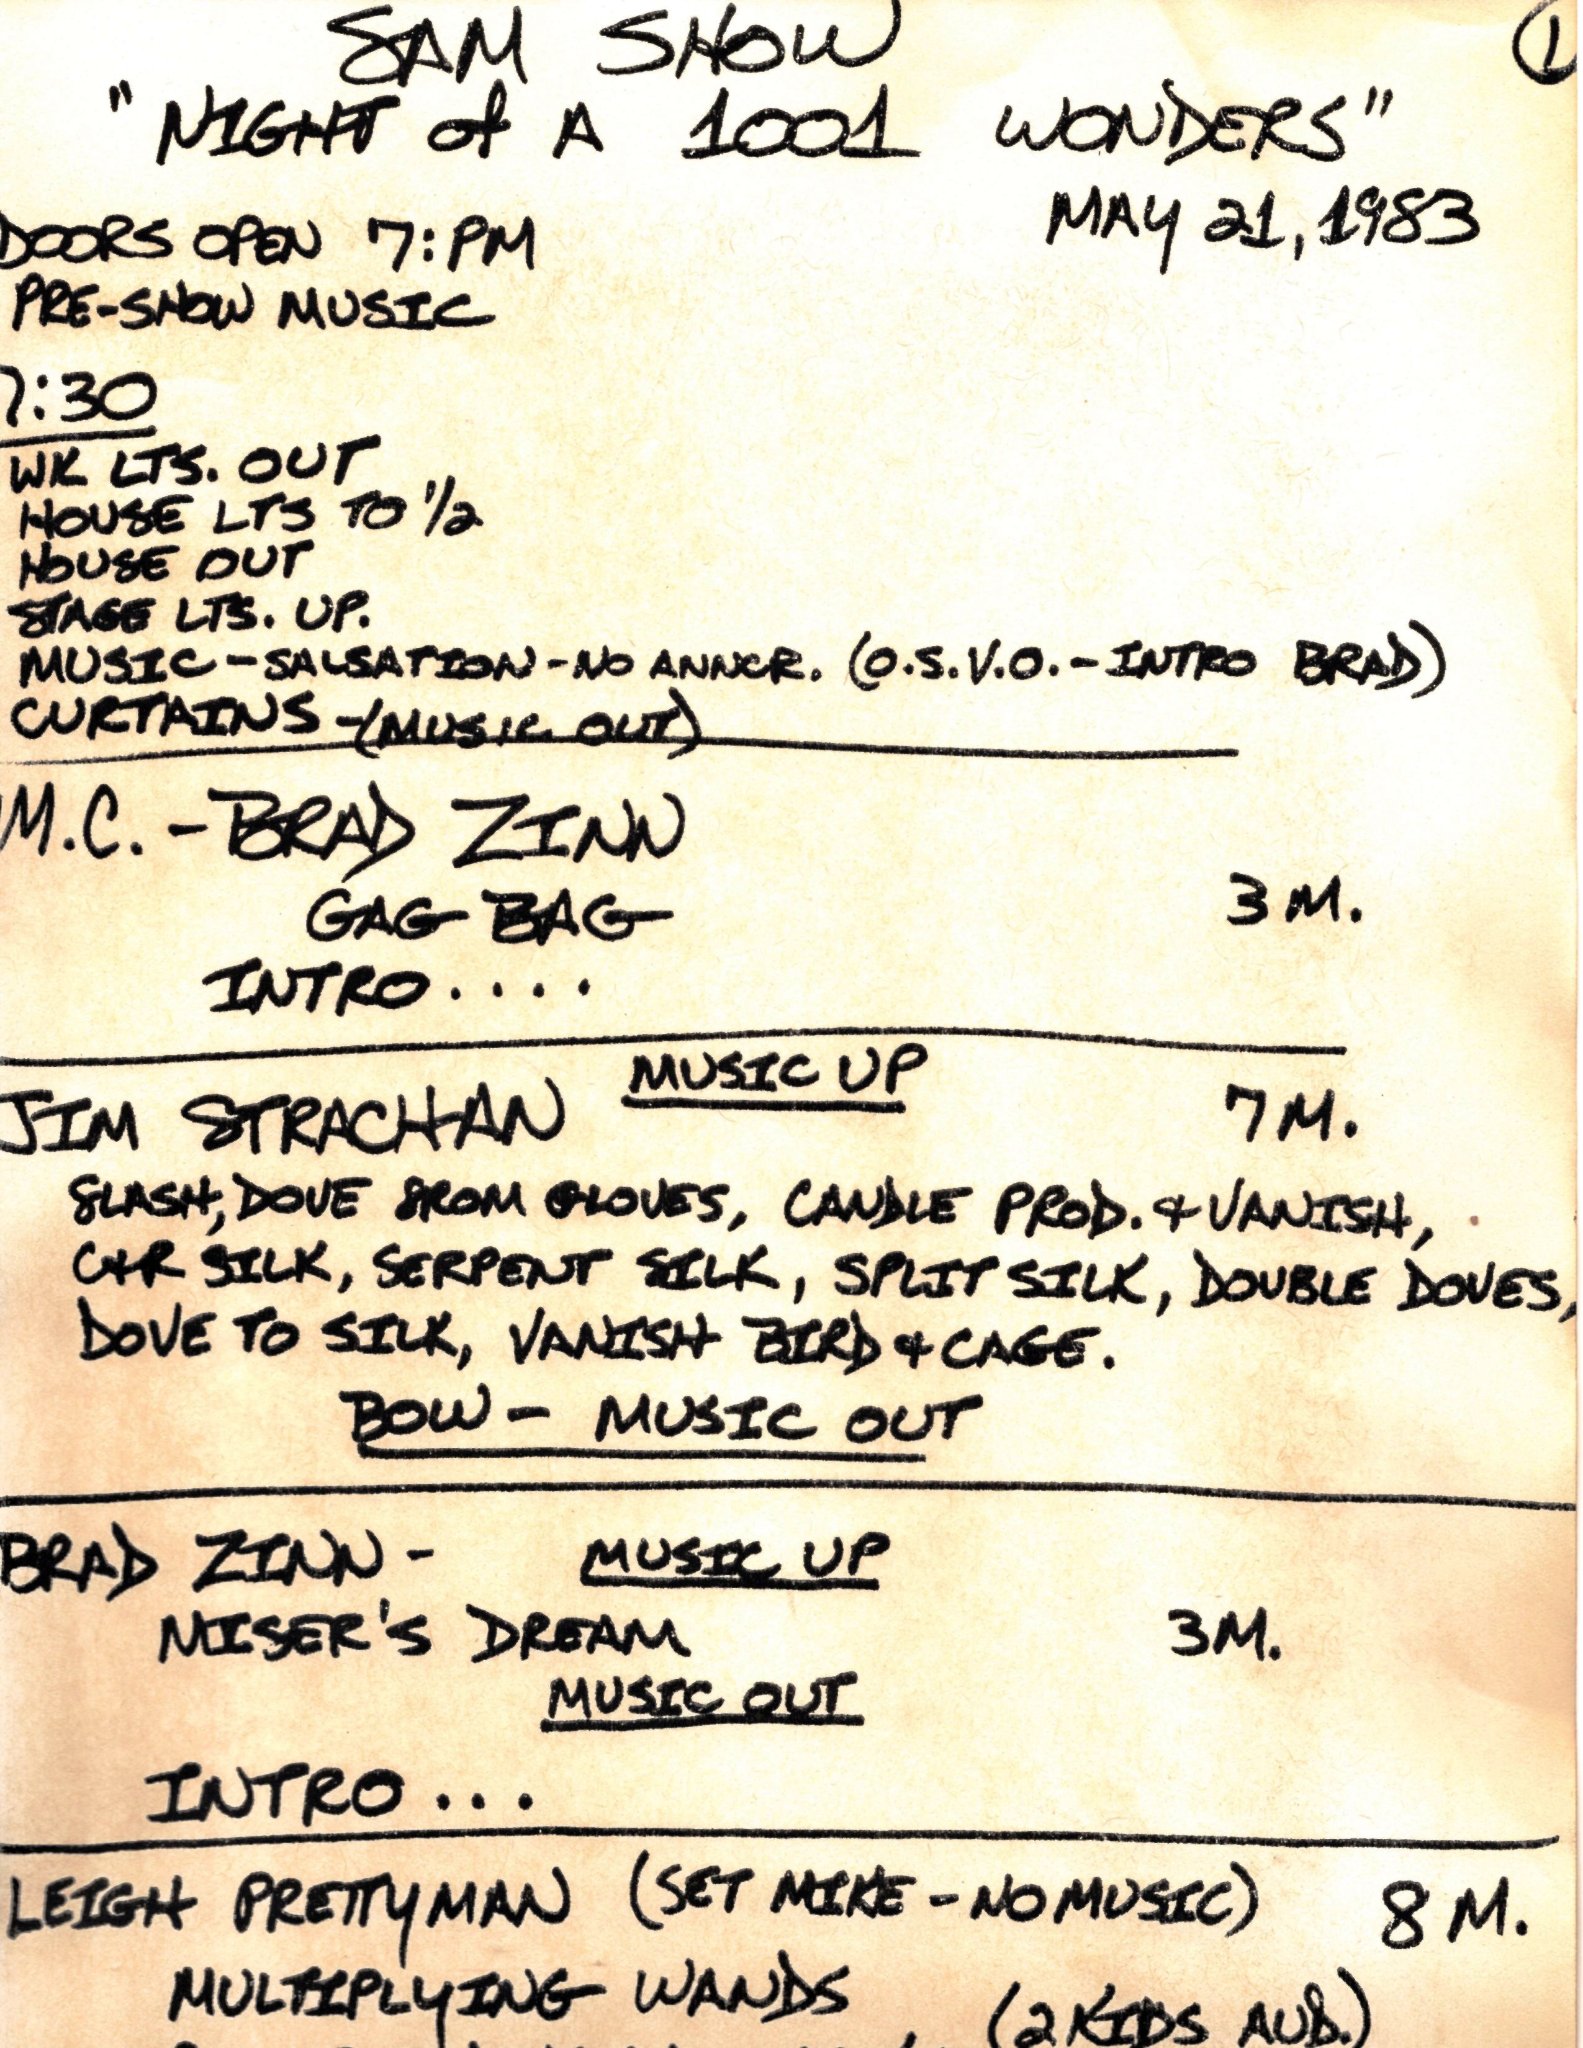 1
SAM SHOW
"NIGHT of A 1001 WONDERS"
MAY 21, 1983
DOORS OPEN 7:PM
PRE-SHOW MUSIC
7:30
WK LTS. OUT
HOUSE LTS TO 1/2
HOUSE OUT
STAGE LTS. UP.
MUSIC - SALSATION - NO ANNCR. (O.S.V.O. - INTRO BRAD)
CURTAINS - (MUSIC OUT)
M.C. - BRAD ZINN
GAG BAG 3 M.
INTRO....
MUSIC UP
JIM STRACHAN 7 M.
FLASH, DOVE FROM GLOVES, CANDLE PROD. & VANISH,
C&R SILK, SERPENT SILK, SPLIT SILK, DOUBLE DOVES,
DOVE TO SILK, VANISH BIRD & CAGE.
BOW - MUSIC OUT
BRAD ZINN - MUSIC UP
MISER'S DREAM 3 M.
MUSIC OUT
INTRO...
LEIGH PRETTYMAN (SET MIKE - NO MUSIC) 8 M.
MULTIPLYING WANDS (2 KIDS AUD.)